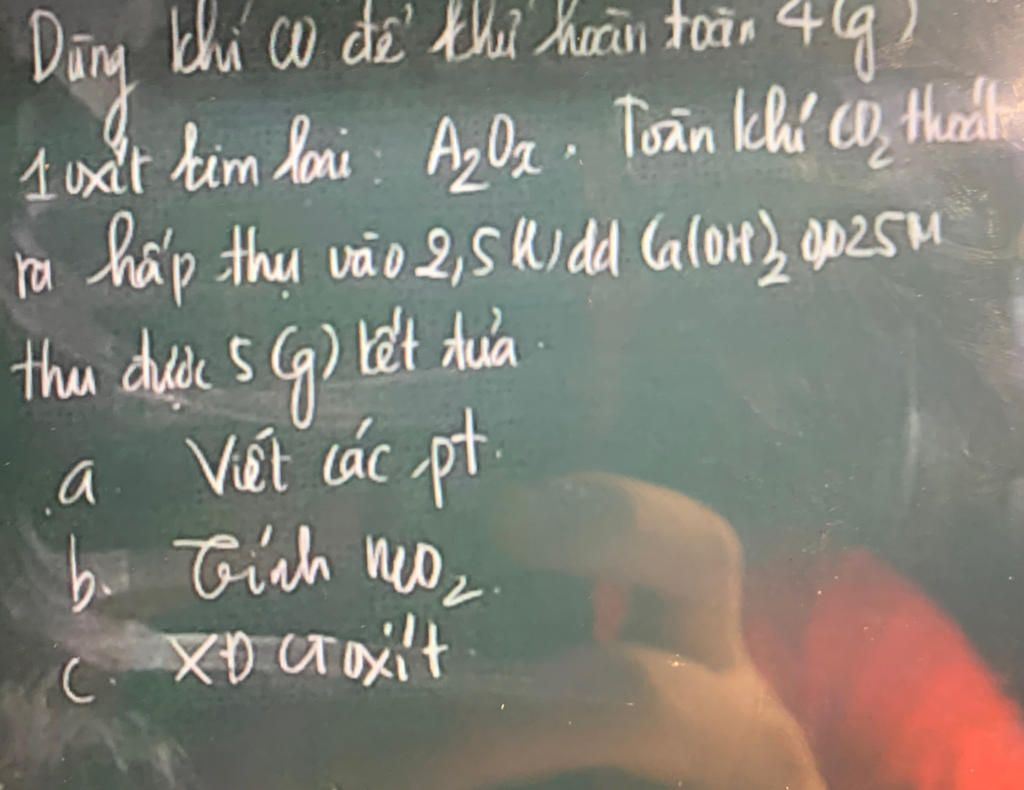 Dùng khí CO để khử hoàn toàn 4(g)
1 oxít kim loại: A₂Oₓ. Toàn khí CO₂ thoát
ra hấp thụ vào 2,5(l) dd Ca(OH)₂ 0,025M
thu được 5(g) kết tủa.
a. Viết các pt.
b. Tính nCO₂.
c. XĐ CT oxít.